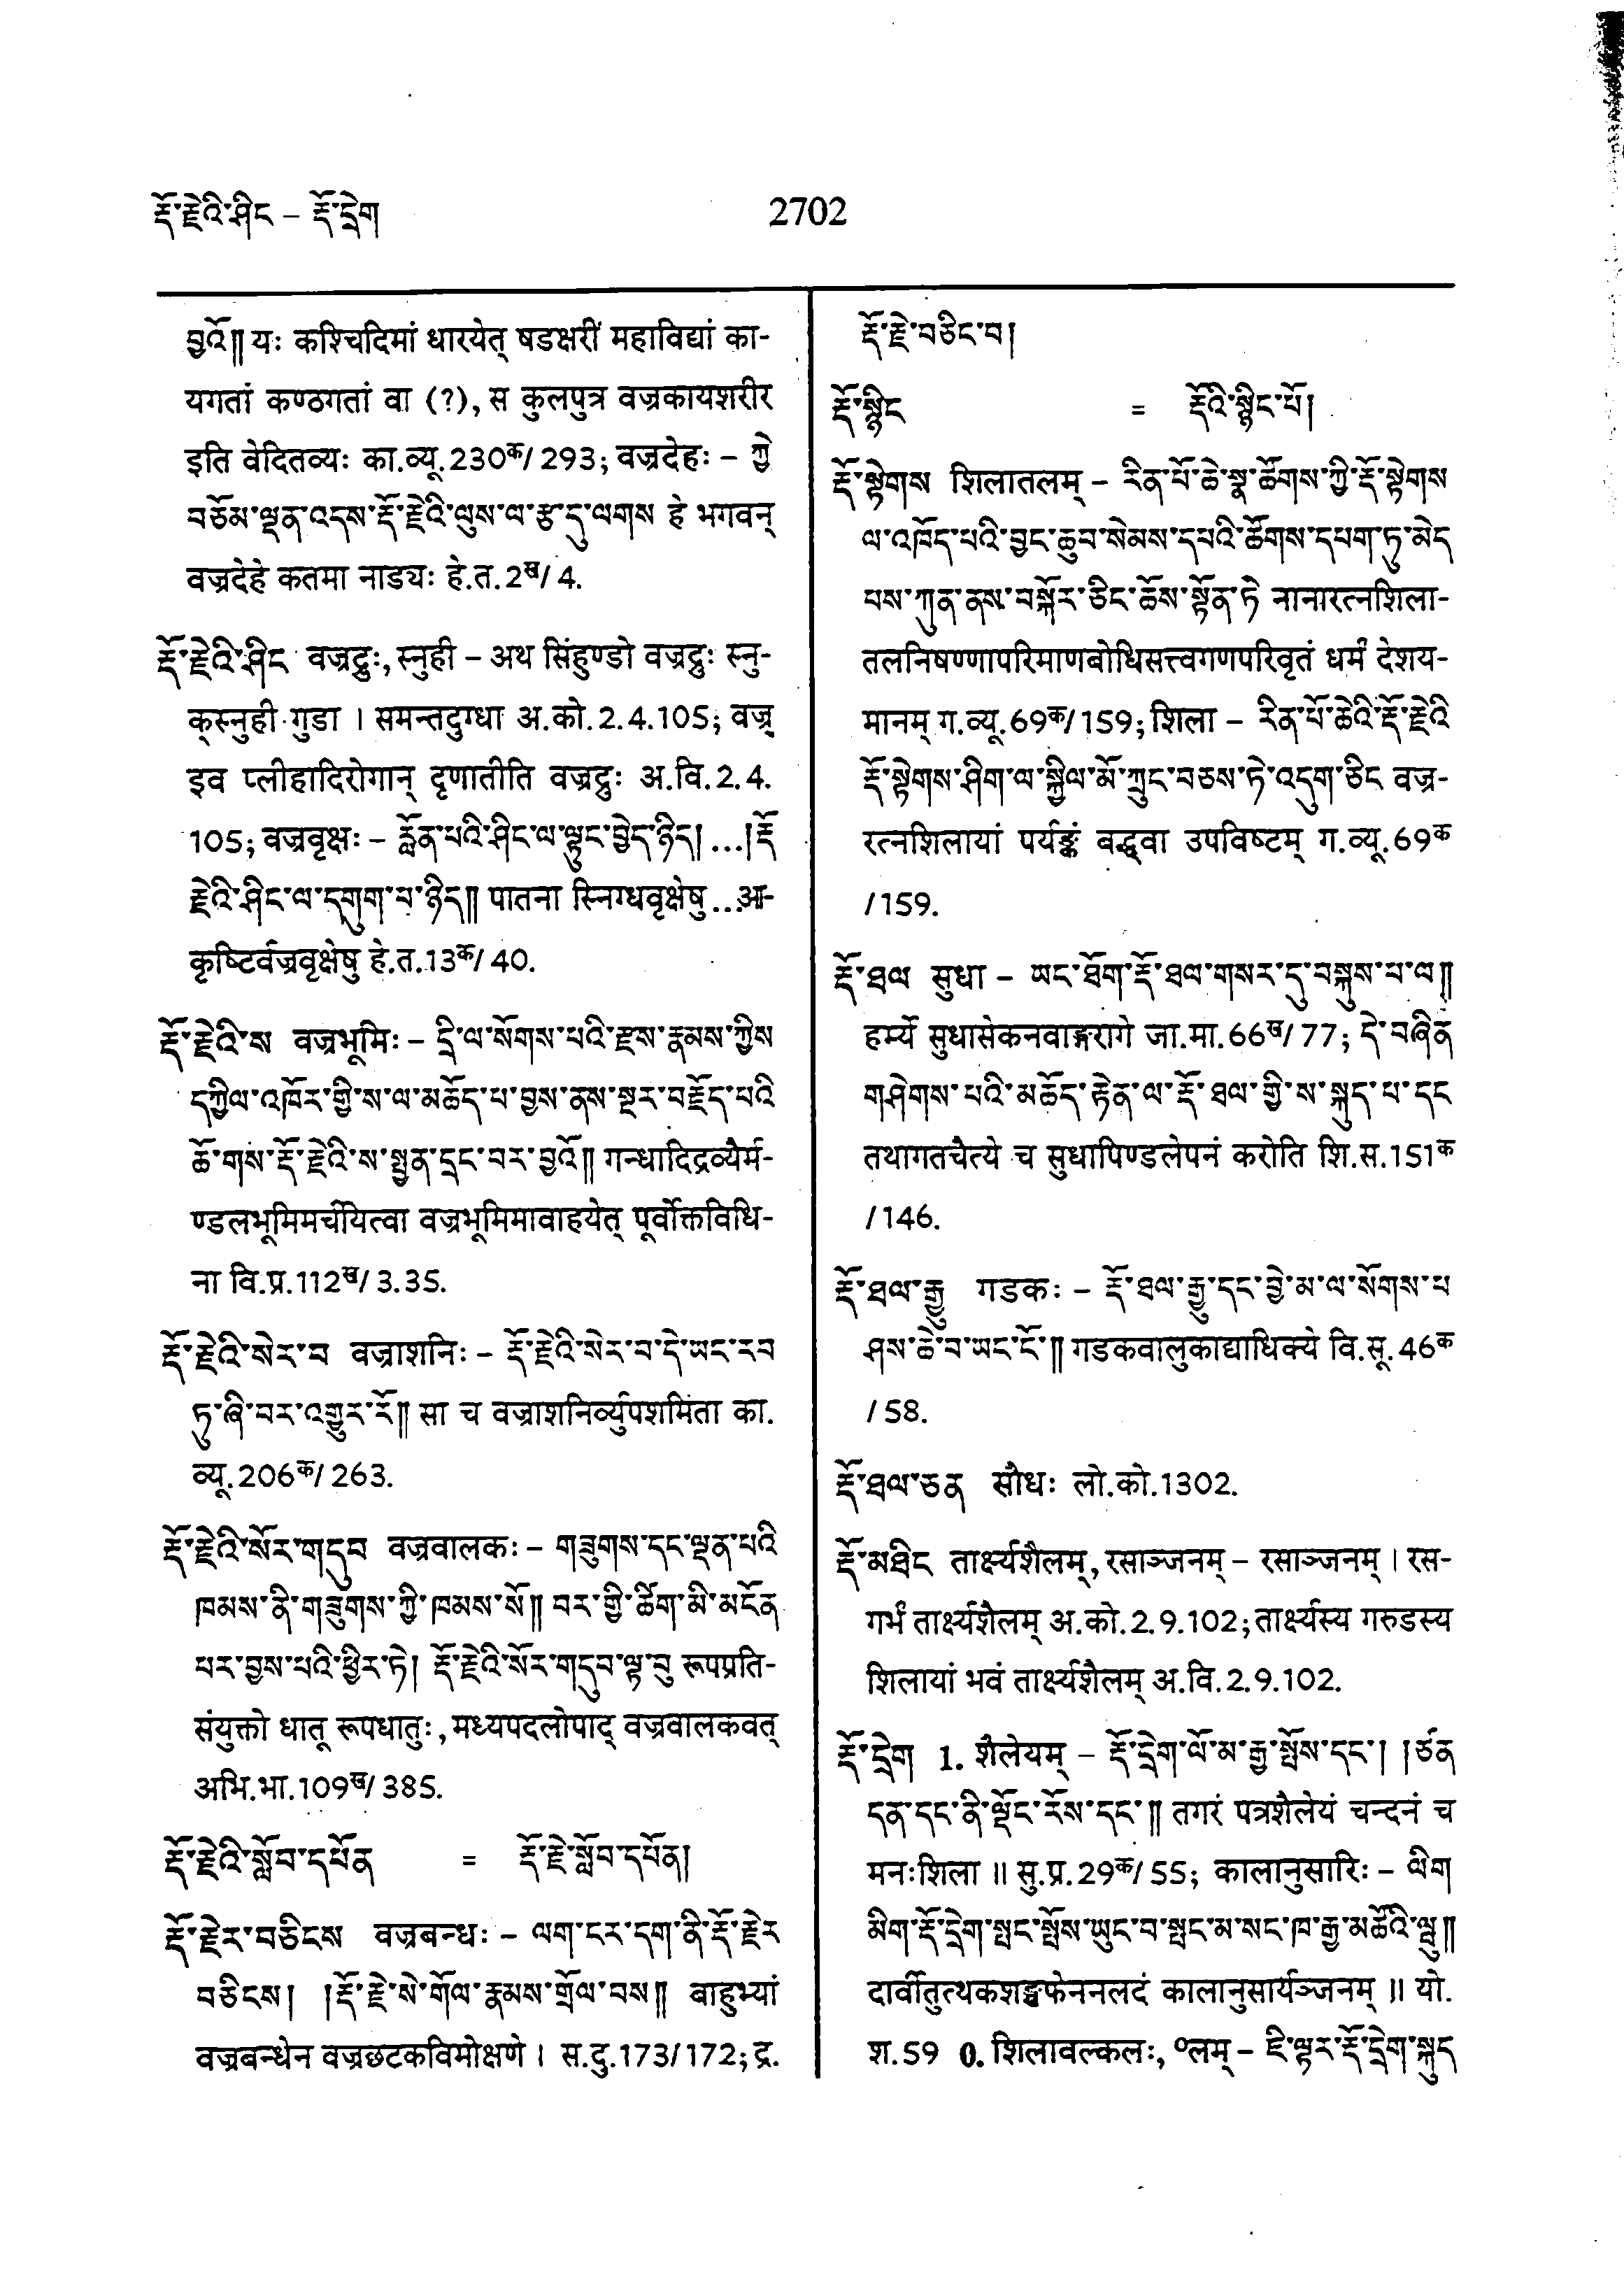 རྡོ་རྗེའི་ཤིང – རྡོ་དྲེག
2702
བྱའོ༎ यः कश्चिदिमां धारयेत् षडक्षरीं महाविद्यां का-
यगतां कण्ठगतां वा (?), स कुलपुत्र वज्रकायशरीर
इति वेदितव्यः का.व्यू.230क/293; वज्रदेहः – ཀྱེ
བཅོམ་ལྡན་འདས་རྡོ་རྗེའི་ལུས་ལ་རྩ་དུ་ལགས हे भगवन्
वज्रदेहे कतमा नाड्यः हे.त.2ख/4.
རྡོ་རྗེའི་ཤིང वज्रद्रुः, स्नुही – अथ सिंहुण्डो वज्रद्रुः स्नु-
क्स्नुही गुडा । समन्तदुग्धा अ.को.2.4.105; वज्र
इव प्लीहादिरोगान् दृणातीति वज्रद्रुः अ.वि.2.4.
105; वज्रवृक्षः – རློན་པའི་ཤིང་ལ་ལྟུང་བྱེད་ཉིད། ...།རྡོ
རྗེའི་ཤིང་ལ་དགུག་པ་ཉིད༎ पातना स्निग्धवृक्षेषु ...आ-
कृष्टिर्वज्रवृक्षेषु हे.त.13क/40.
རྡོ་རྗེའི་ས वज्रभूमिः – དྲི་ལ་སོགས་པའི་རྫས་རྣམས་ཀྱིས
དཀྱིལ་འཁོར་གྱི་ས་ལ་མཆོད་པ་བྱས་ནས་སྔར་བརྗོད་པའི
ཆོ་གས་རྡོ་རྗེའི་ས་སྤྱན་དྲང་བར་བྱའོ༎ गन्धादिद्रव्यैर्म-
ण्डलभूमिमर्चयित्वा वज्रभूमिमावाहयेत् पूर्वोक्तविधि-
ना वि.प्र.112ख/3.35.
རྡོ་རྗེའི་སེར་བ वज्राशनिः – རྡོ་རྗེའི་སེར་བ་དེ་ཡང་རབ
ཏུ་ཞི་བར་འགྱུར་རོ༎ सा च वज्राशनिर्व्युपशमिता का.
व्यू.206क/263.
རྡོ་རྗེའི་སོར་གདུབ वज्रवालकः – གཟུགས་དང་ལྡན་པའི
ཁམས་ནི་གཟུགས་ཀྱི་ཁམས་སོ༎ བར་གྱི་ཚིག་མི་མངོན
པར་བྱས་པའི་ཕྱིར་ཏེ། རྡོ་རྗེའི་སོར་གདུབ་ལྟ་བུ रूपप्रति-
संयुक्तो धातू रूपधातुः, मध्यपदलोपाद् वज्रवालकवत्
अभि.भा.109ख/385.
རྡོ་རྗེའི་སློབ་དཔོན = རྡོ་རྗེ་སློབ་དཔོན།
རྡོ་རྗེར་བཅིངས वज्रबन्धः – ལག་ངར་དག་ནི་རྡོ་རྗེར
བཅིངས། །རྡོ་རྗེ་སེ་གོལ་རྣམས་གྲོལ་བས༎ बाहुभ्यां
वज्रबन्धेन वज्रछटकविमोक्षणे । स.दु.173/172; द्र.
རྡོ་རྗེ་བཅིང་བ།
རྡོ་སྙིང = རྡོའི་སྙིང་པོ།
རྡོ་སྟེགས शिलातलम् – རིན་པོ་ཆེ་སྣ་ཚོགས་ཀྱི་རྡོ་སྟེགས
ལ་འཁོད་པའི་བྱང་ཆུབ་སེམས་དཔའི་ཚོགས་དཔག་ཏུ་མེད
པས་ཀུན་ནས་བསྐོར་ཅིང་ཆོས་སྟོན་ཏེ नानारत्नशिला-
तलनिषण्णापरिमाणबोधिसत्त्वगणपरिवृतं धर्मं देशय-
मानम् ग.व्यू.69क/159; शिला – རིན་པོ་ཆེའི་རྡོ་རྗེའི
རྡོ་སྟེགས་ཤིག་ལ་སྐྱིལ་མོ་ཀྲུང་བཅས་ཏེ་འདུག་ཅིང वज्र-
रत्नशिलायां पर्यङ्कं बद्ध्वा उपविष्टम् ग.व्यू.69क
/159.
རྡོ་ཐལ सुधा – ཡང་ཐོག་རྡོ་ཐལ་གསར་དུ་བསྐུས་པ་ལ༎
हर्म्ये सुधासेकनवाङ्गरागे जा.मा.66ख/77; དེ་བཞིན
གཤེགས་པའི་མཆོད་རྟེན་ལ་རྡོ་ཐལ་གྱི་ས་སྐུད་པ་དང
तथागतचैत्ये च सुधापिण्डलेपनं करोति शि.स.151क
/146.
རྡོ་ཐལ་རྒྱུ गडकः – རྡོ་ཐལ་རྒྱུ་དང་བྱེ་མ་ལ་སོགས་པ
ཤས་ཆེ་བ་ཡང་ངོ་༎ गडकवालुकाद्याधिक्ये वि.सू.46क
/58.
རྡོ་ཐལ་ཅན सौधः लो.को.1302.
རྡོ་མཐིང तार्क्ष्यशैलम्, रसाञ्जनम् – रसाञ्जनम् । रस-
गर्भं तार्क्ष्यशैलम् अ.को.2.9.102; तार्क्ष्यस्य गरुडस्य
शिलायां भवं तार्क्ष्यशैलम् अ.वि.2.9.102.
རྡོ་དྲེག 1. शैलेयम् – རྡོ་དྲེག་ལོ་མ་རྒྱ་སྤོས་དང་། །ཙན
དན་དང་ནི་ལྡོང་རོས་དང་༎ तगरं पत्रशैलेयं चन्दनं च
मनःशिला ॥ सु.प्र.29क/55; कालानुसारिः – ལིག
མིག་རྡོ་དྲེག་སྤང་སྤོས་ཡུང་བ་སྤང་མ་སང་ཁ་རྒྱ་མཚོའི་ལྦུ༎
दार्वीतुत्थकशङ्खफेननलदं कालानुसार्यञ्जनम् ॥ यो.
श.59 0. शिलावल्कलः, ०लम् – ཇི་ལྟར་རྡོ་དྲེག་སྐུད